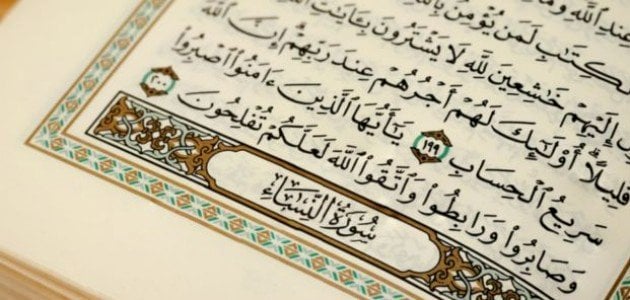 عِندِ ٱللَّهِ وَمَا
ٱلْكِتَٰبِ لَمَن يُؤْمِنُ بِٱللَّهِ
إِلَيْهِمْ خَٰشِعِينَ لِلَّهِ لَا يَشْتَرُونَ بِـَٔايَٰتِ ٱللَّهِ
قَلِيلًا أُو۟لَٰٓئِكَ لَهُمْ أَجْرُهُمْ عِندَ رَبِّهِمْ إِنَّ ٱللَّهَ
سَرِيعُ ٱلْحِسَابِ ١٩٩ يَٰٓأَيُّهَا ٱلَّذِينَ ءَامَنُوا۟ ٱصْبِرُوا۟
وَصَابِرُوا۟ وَرَابِطُوا۟ وَٱتَّقُوا۟ ٱللَّهَ لَعَلَّكُمْ تُفْلِحُونَ ٢٠٠
سُورَةُ النِّسَاءِ